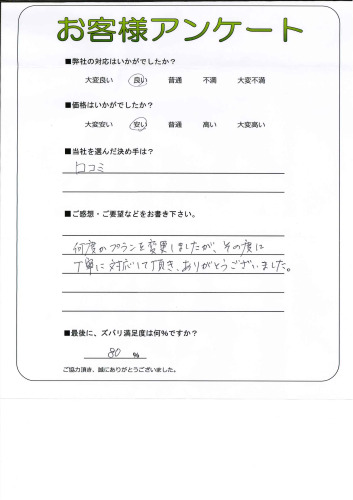 お客様アンケート
■弊社の対応はいかがでしたか？
大変良い 良い 普通 不満 大変不満
■価格はいかがでしたか？
大変安い 安い 普通 高い 大変高い
■当社を選んだ決め手は？
口コミ
■ご感想・ご要望などをお書き下さい。
何度かプランを変更しましたが、その度に
丁寧に対応して頂き、ありがとうございました。
■最後に、ズバリ満足度は何%ですか？
80 %
ご協力頂き、誠にありがとうございました。